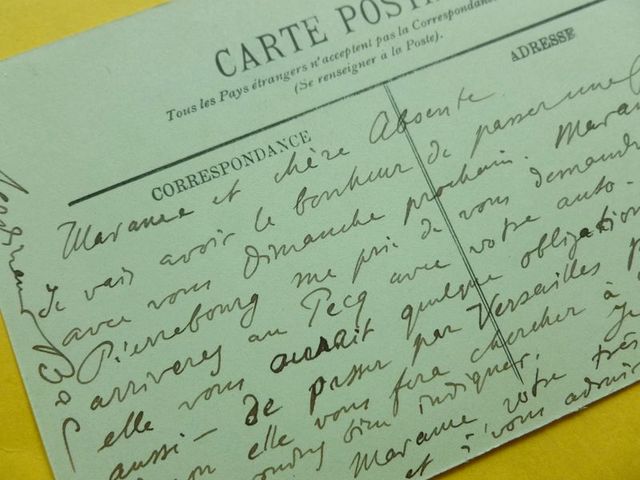 CARTE POST
Tous les Pays étrangers n'acceptent pas la Correspondance
(Se renseigner à la Poste).
CORRESPONDANCE
ADRESSE
Madame et chère Absente
Je vais avoir le bonheur de passer une
avec vous dimanche prochain. Mada
Pierrebourg me prie de vous demand
arriverez au Pecq avec votre auto-
elle vous aurait quelque obligation
aussi - de passer par Versailles
elle vous fera chercher à
bien indiquer. Je
Madame votre très
et j'vous admir